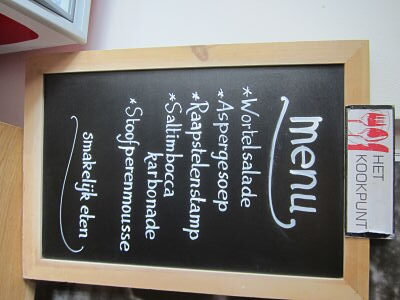 HET
KOOKPUNT
menu
*Wortelsalade
*Aspergesoep
*Raapstelenstamp
*Saltimbocca
karbonade
*Stoofperenmousse
smakelijk eten